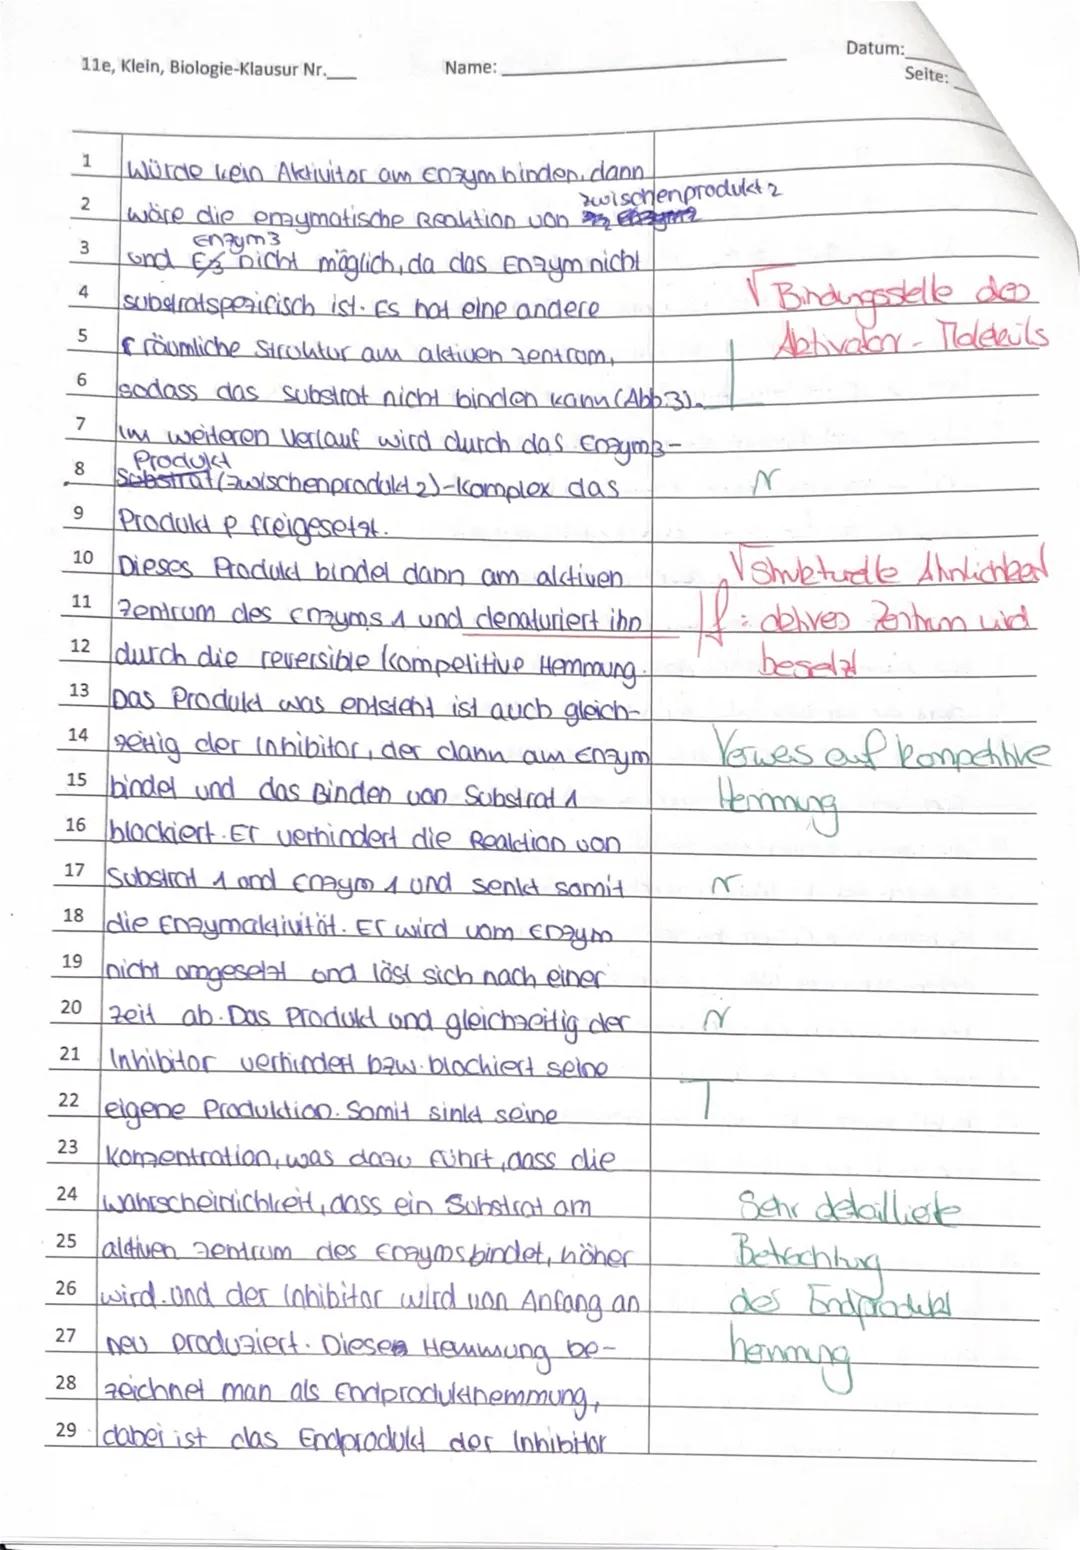 11e, Klein, Biologie-Klausur Nr.___ Name: Datum:
Seite:
1 Würde kein Aktivitor am Enzym binden, dann
zwischenprodukt 2
2 wäre die enzymatische Reaktion von
Enzym3
3 und nicht möglich, da das Enzym nicht
4 substratspezifisch ist. Es hat eine andere
√ Bindungsstelle des
5 räumliche Struktur am aktiven Zentrum,
Aktivator-Moleküls
6 sodass das Substrat nicht binden kann (Abb.3).
7 Im weiteren Verlauf wird durch das Enzym3-
Produkt
8 Substrat (zwischenprodukt 2)-Komplex das
9 Produkt P freigesetzt.
10 Dieses Produkt bindet dann am aktiven
√ strukturelle Ähnlichkeit
11 Zentrum des Enzyms 1 und denaturiert ihn
f: aktives Zentrum wird
12 durch die reversible kompetitive Hemmung.
besetzt
13 Das Produkt was entsteht ist auch gleich-
14 zeitig der Inhibitor, der dann am Enzym
Verweis auf kompetitive
15 bindet und das Binden von Substrat 1
Hemmung
16 blockiert. Er verhindert die Reaktion von
17 Substrat 1 und Enzym 1 und senkt somit
18 die Enzymaktivität. Er wird vom Enzym
19 nicht umgesetzt und löst sich nach einer
20 Zeit ab. Das Produkt und gleichzeitig der
21 Inhibitor verhindert bzw. blockiert seine
22 eigene Produktion. Somit sinkt seine
23 Konzentration, was dazu führt, dass die
24 Wahrscheinlichkeit, dass ein Substrat am
Sehr detaillierte
25 aktiven Zentrum des Enzyms bindet, höher
Betrachtung
26 wird. Und der Inhibitor wird von Anfang an
des Endprodukt
27 neu produziert. Diese Hemmung be-
hemmung
28 zeichnet man als Endprodukthemmung,
29 dabei ist das Endprodukt der Inhibitor